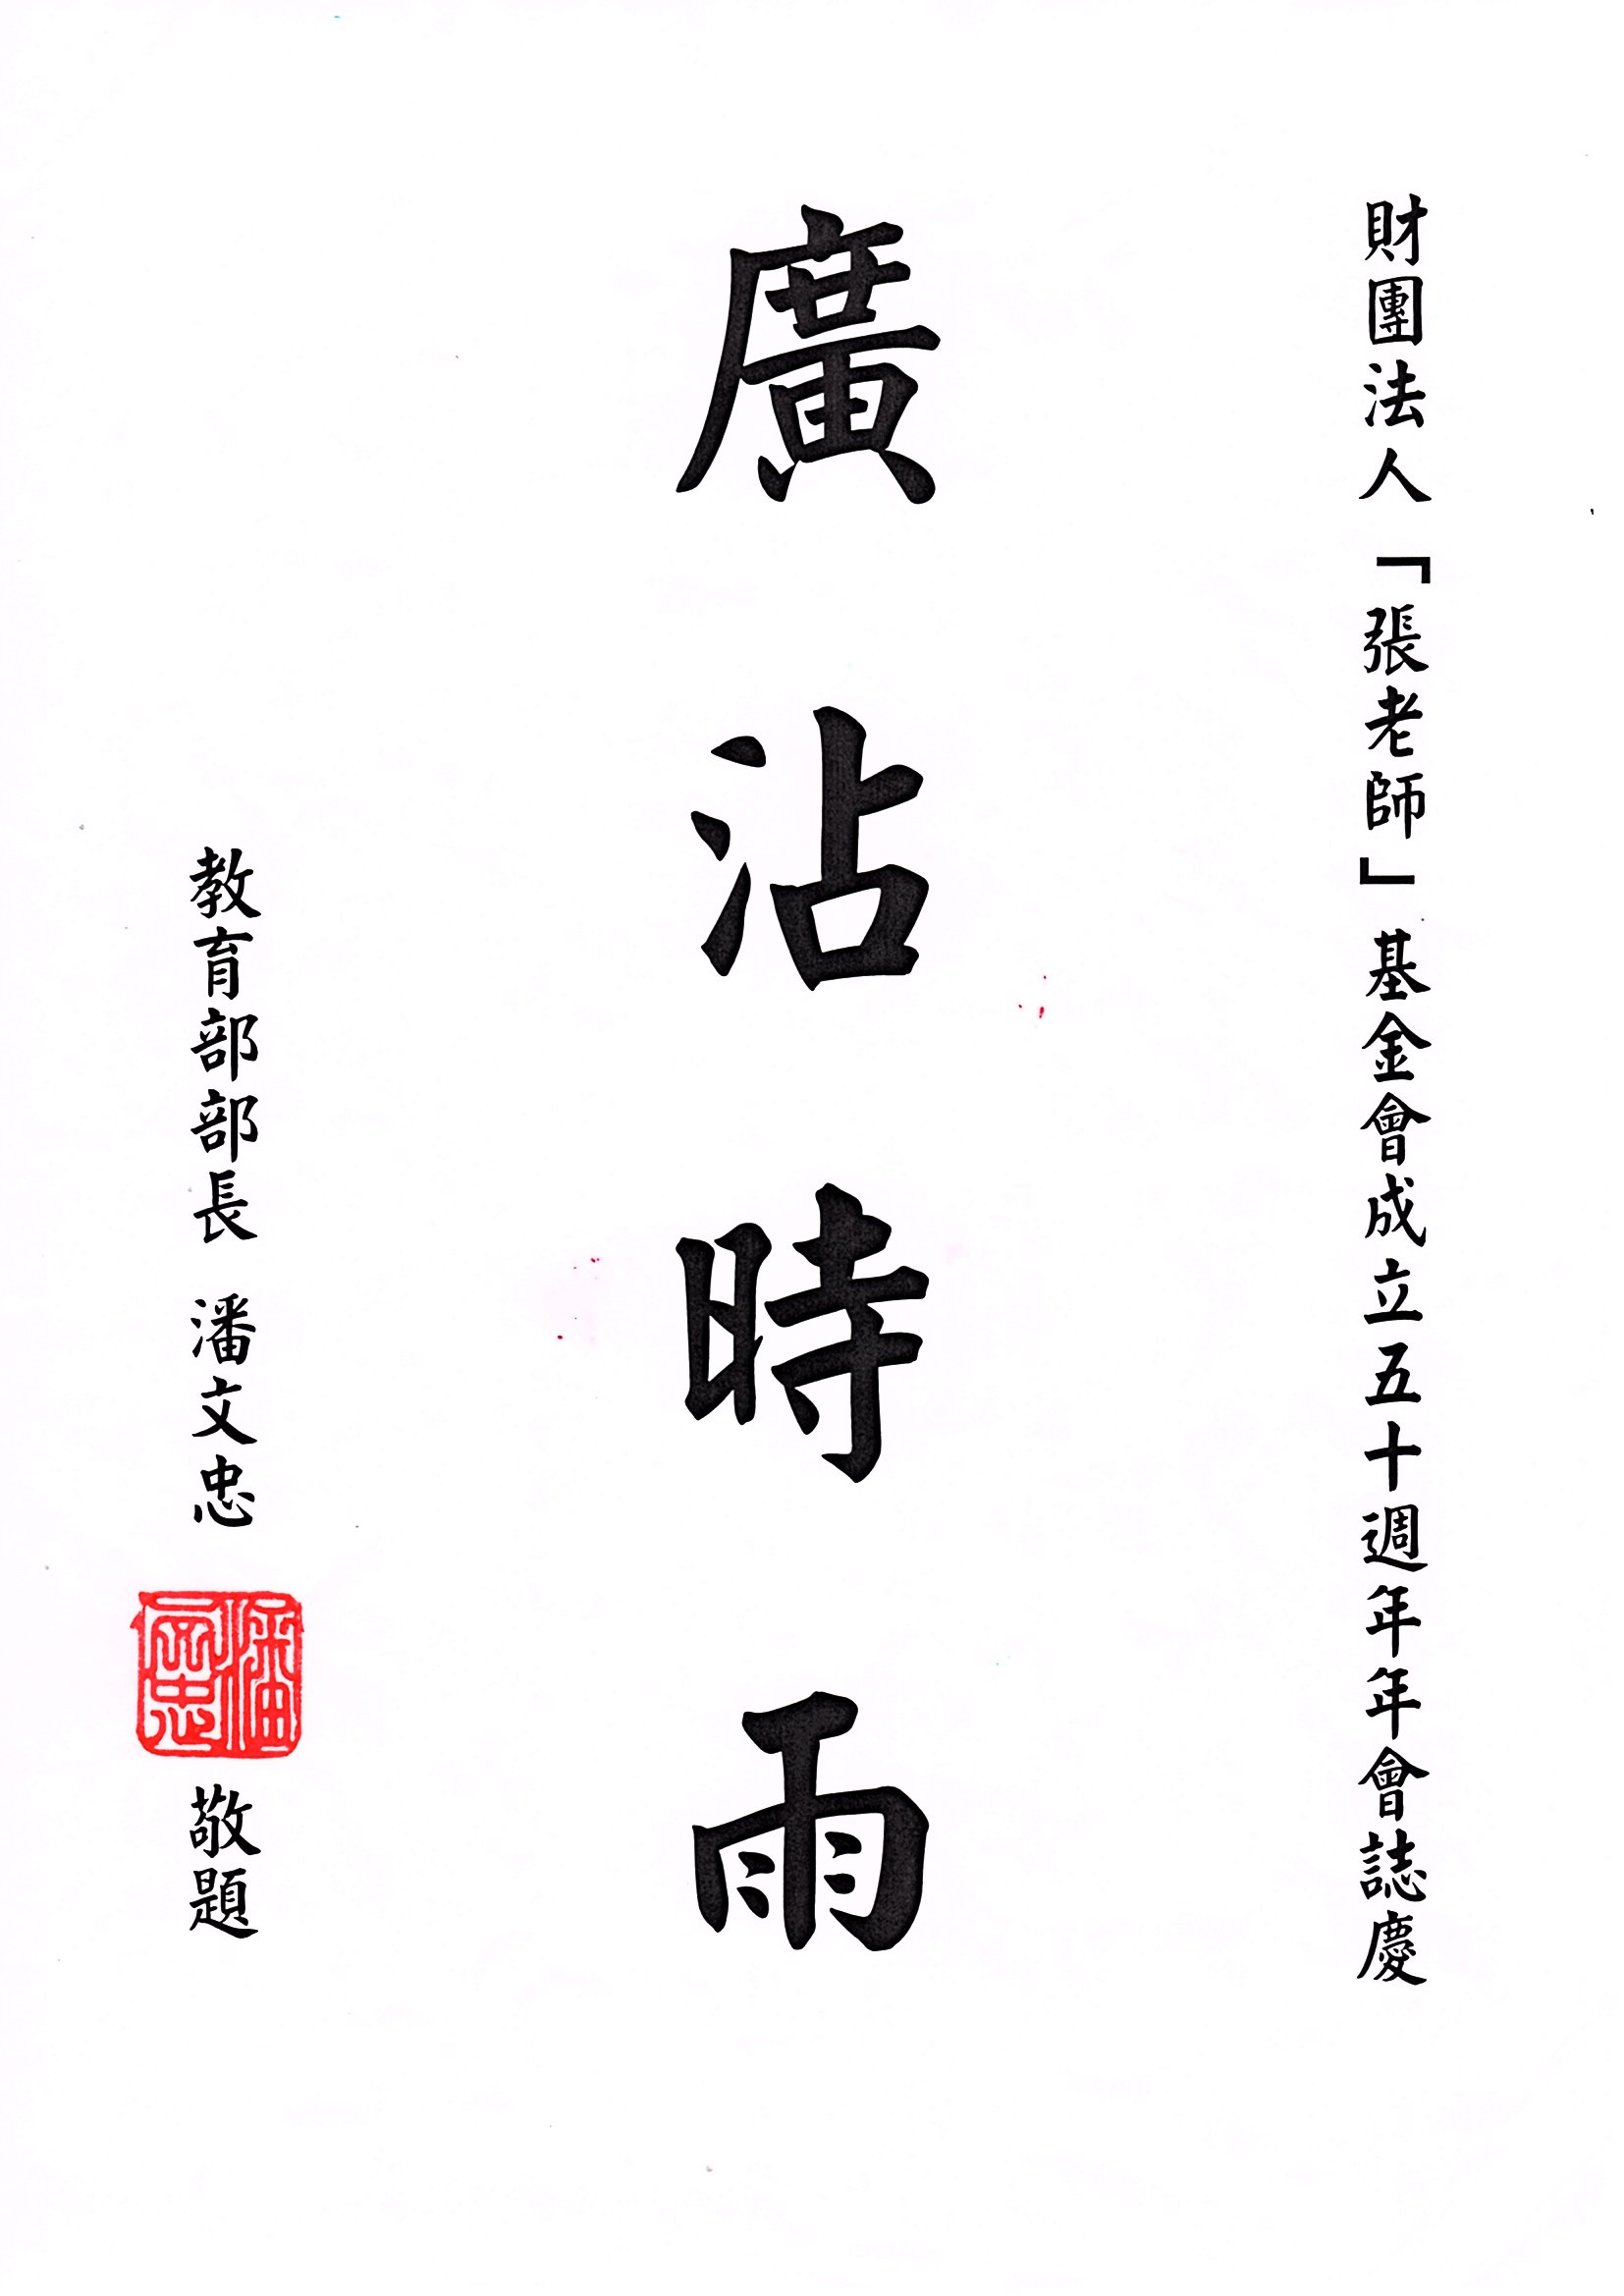 財團法人「張老師」基金會成立五十週年年會誌慶
廣沾時雨
教育部部長 潘文忠
潘文忠
敬題